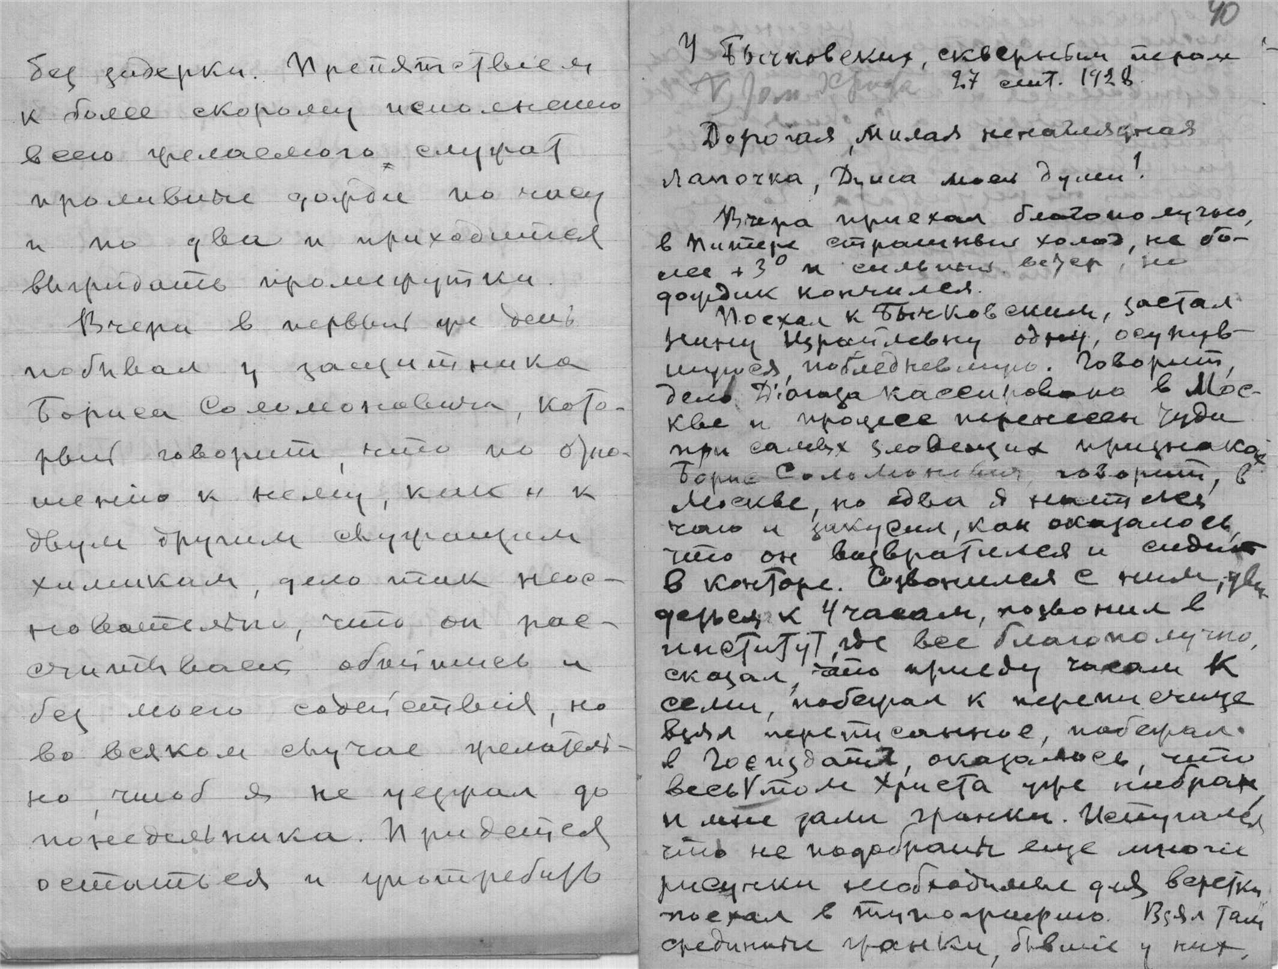 без задержки. Препятствием
к более скорому исполнению
всего желаемого служат
проливные дожди по часу
и по два и приходится
выгадать промежутки.
Вчера в первый же день
побывал у защитника
Бориса Соломоновича, кото-
рый говорит, что по отно-
шению к нему, как и к
двум другим служащим
химикам, дело так неос-
новательно, что он рас-
считывает обойтись и
без моего содействия, но
во всяком случае желатель-
но, чтоб я не уезжал до
понедельника. Придется
остаться и употребить
40
У Бычковских, скверным пером
27 сент. 1928
V том Христа
Дорогая, милая ненаглядная
Лапочка, Душа моей души!
Вчера приехал благополучно,
в Питере страшный холод, не бо-
лее +3° и сильный ветер, но
дождик кончился.
Поехал к Бычковским, застал
Нину Израилевну одну, осунув-
шуюся, побледневшую. Говорит,
дело кассировано в Мос-
кве и процесс перенесен туда
при самых зловещих признаках
Борис Соломонович, говорит, в
Москве, но едва я напился
чаю и закусил, как оказалось,
что он возвратился и сидит
в конторе. Созвонился с ним,
к 4 часам, позвонил в
институт, где все благополучно,
сказал, что приеду часам к
семи, побежал к переписчице
взял переписанное, побежал
в Госиздат, оказалось, что
весь V том Христа уже набран,
и мне дали гранки. Испугался
что не подобраны еще многие
рисунки необходимые для верстки
поехал в типографию. Взял там
гранки, бывшие у них,